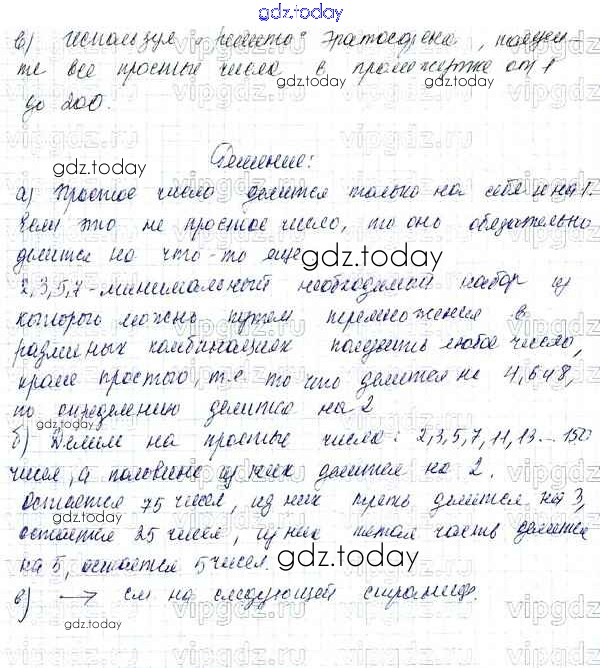 gdz.today
в) Используя „решето" Эратосфена, найди-
те все простые числа в промежутке от 1
до 200.
gdz.today
Решение:
gdz.today
а) Простое число делится только на себя и на 1.
Если это не простое число, то оно обязательно
делится на что-то еще
gdz.today
2,3,5,7-минимальный необходимый набор из
которого можно путем перемножения в
различных комбинациях получить любое число,
кроме простого, т.е. то что делится на 4,6 и 8,
по определению делится на 2
gdz.today
б) Делим на простые числа: 2,3,5,7,11,13...150
чисел, а половина из них делится на 2.
Остается 75 чисел, из них треть делится на 3,
остается 25 чисел, из них пятая часть делится
на 5, остается 5 чисел.
gdz.today
в) → см на следующей странице.
gdz.today